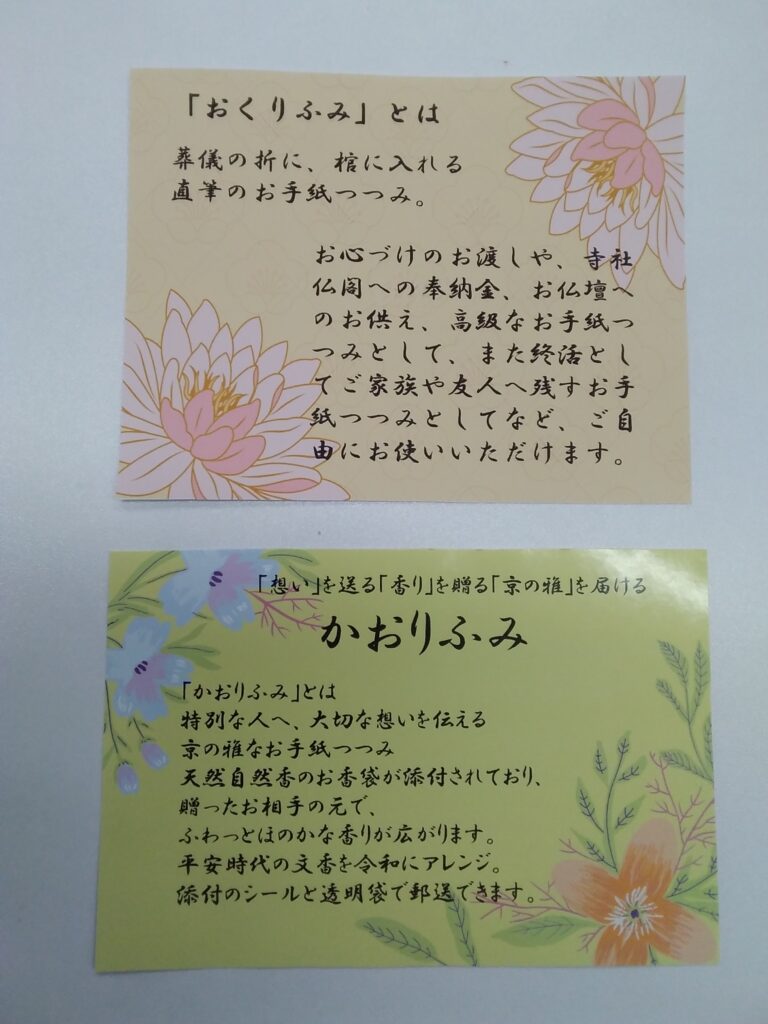 「おくりふみ」とは
葬儀の折に、棺に入れる
直筆のお手紙つつみ。
お心づけのお渡しや、寺社
仏閣への奉納金、お仏壇へ
のお供え、高級なお手紙つ
つみとして、また終活とし
てご家族や友人へ残すお手
紙つつみとしてなど、ご自
由にお使いいただけます。
「想い」を送る「香り」を贈る「京の雅」を届ける
かおりふみ
「かおりふみ」とは
特別な人へ、大切な想いを伝える
京の雅なお手紙つつみ
天然自然香のお香袋が添付されており、
贈ったお相手の元で、
ふわっとほのかな香りが広がります。
平安時代の文香を令和にアレンジ。
添付のシールと透明袋で郵送できます。